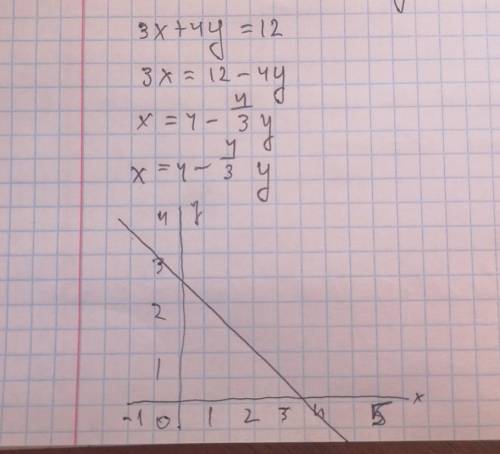 3x+4y=12
3x=12-4y
x=4-4/3 y
x=4-4/3 y
4 y
3
2
1
-1 0 1 2 3 4 5 x